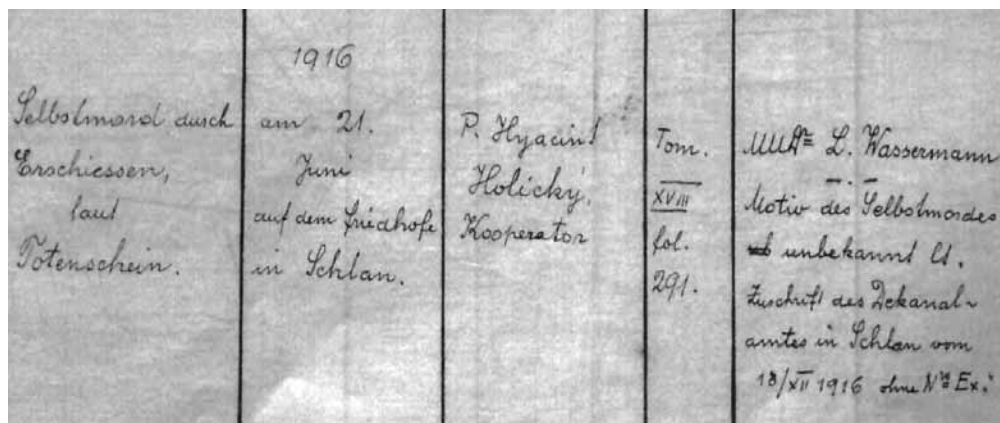 Selbstmord durch
Erschiessen,
laut
Totenschein.
1916
am 21.
Juni
auf dem Friedhofe
in Schlan.
P. Hyacint
Holický,
Kooperator
Tom.
XVIII
fol.
291.
MUDr L. Wassermann
Motiv des Selbstmordes
unbekannt lt.
Zuschrift des Dekanal-
amtes in Schlan vom
18/XII 1916 ohne Nro Ex.